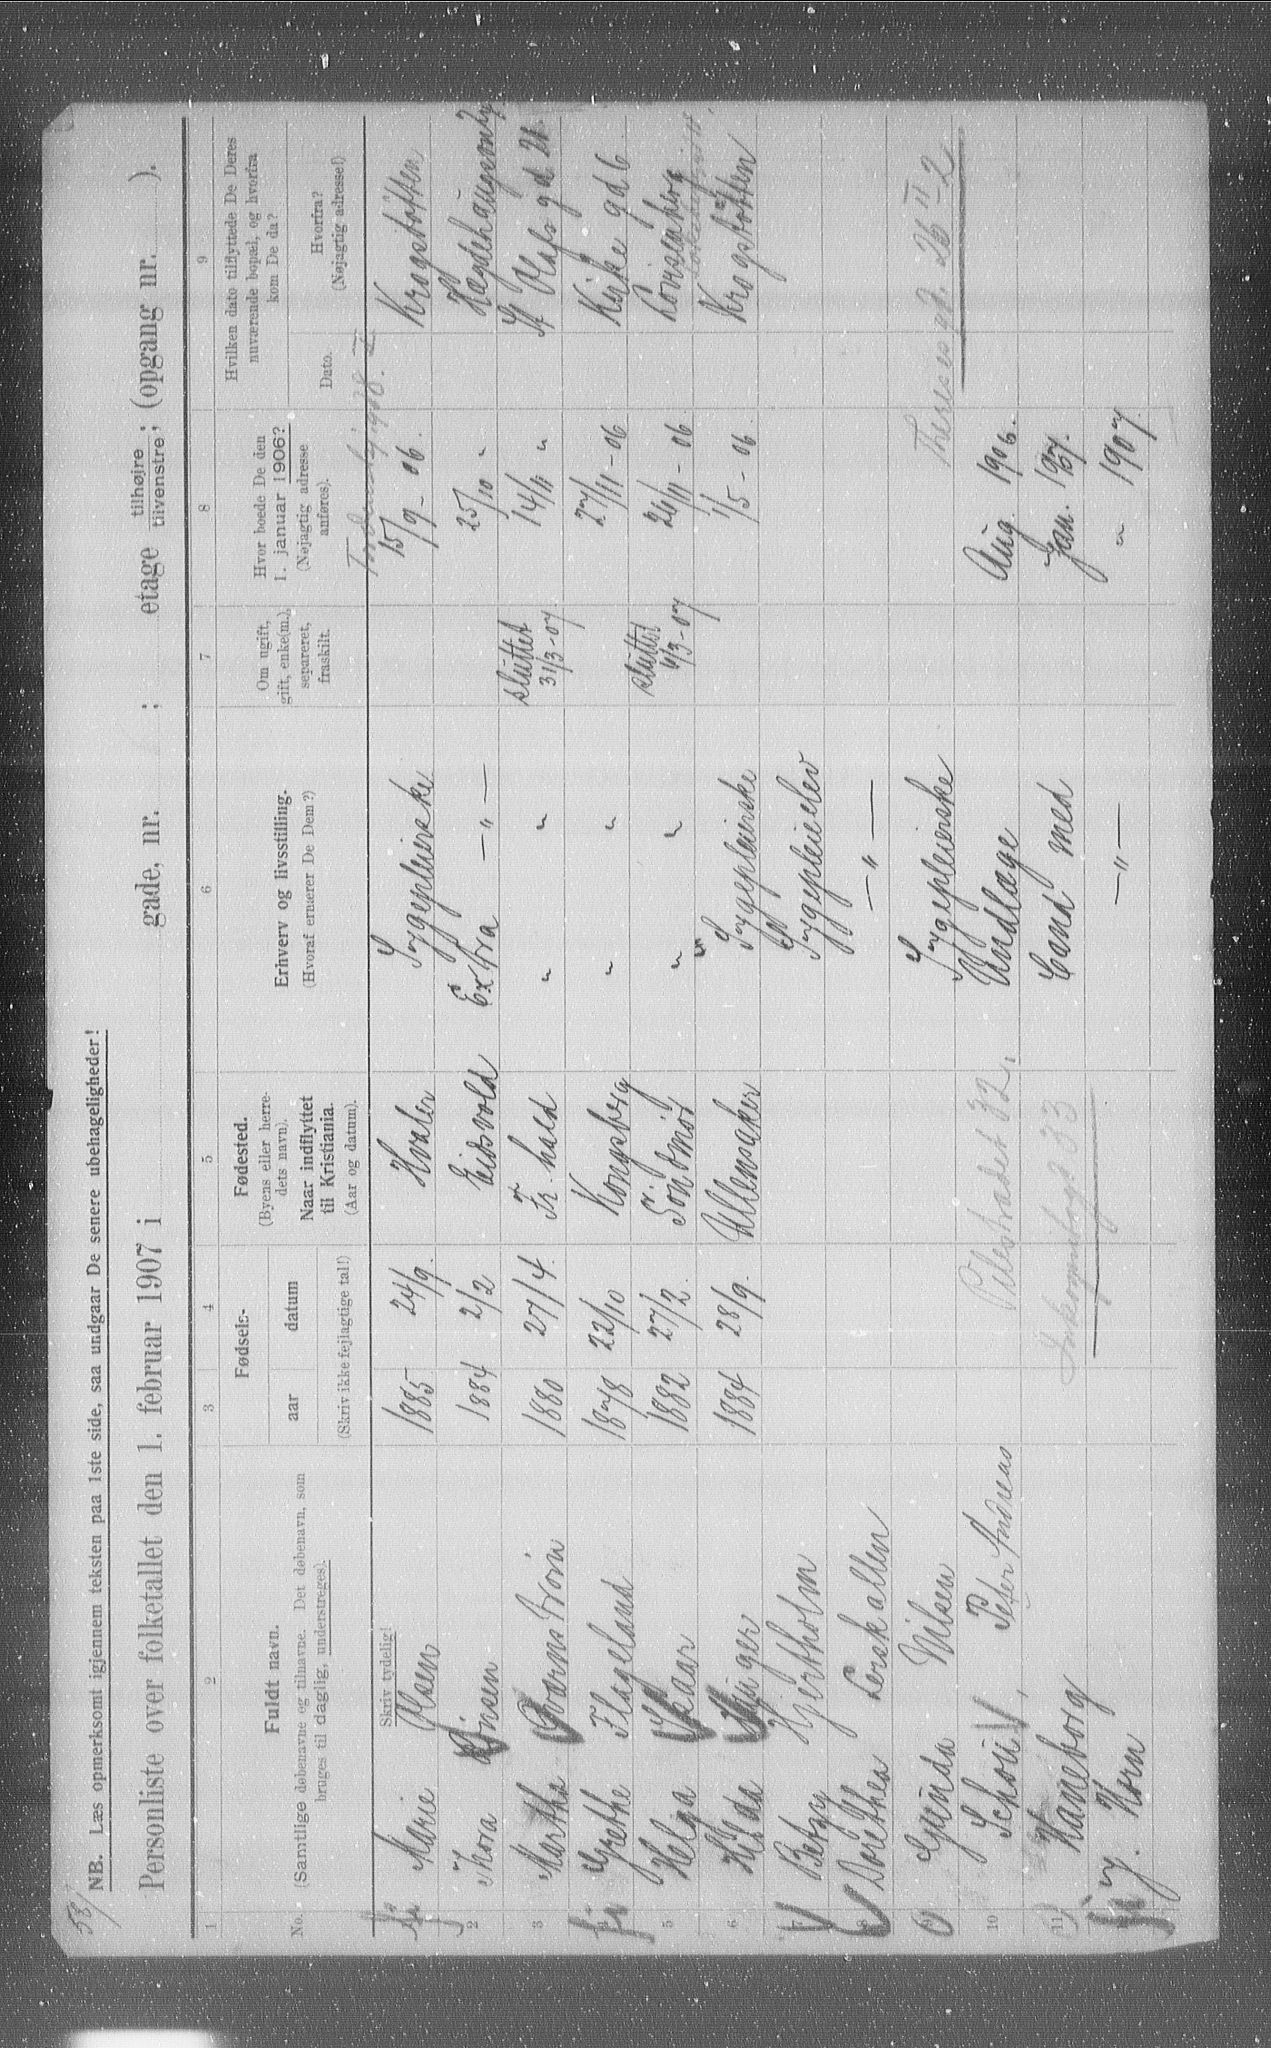 53/
NB. Læs opmerksomt igjennem teksten paa 1ste side, saa undgaar De senere ubehageligheder!
Personliste over folketallet den 1. februar 1907 i gade, nr. ; etage tilhøjre tilvenstre; (opgang nr. ).
1 2 3 4 5 6 7 8 9
No.
Fuldt navn.
(Samtlige døbenavne og tilnavne. Det døbenavn, som
bruges til daglig, understreges).
Fødsels-
aar datum
(Skriv ikke fejlagtige tal!)
Fødested.
(Byens eller herre-
dets navn).
Naar indflyttet
til Kristiania.
(Aar og datum).
Erhverv og livsstilling.
(Hvoraf ernærer De Dem?)
Om ugift,
gift, enke(m.),
separeret,
fraskilt.
Hvor boede De den
1. januar 1906?
(Nøjagtig adresse
anføres).
Hvilken dato tilflyttede De Deres
nuværende bopæl, og hvorfra
kom De da?
Dato.
Hvorfra?
(Nøjagtig adresse!)
Skriv tydelig!
Marie Olsen 1885 24/9. Hvaler Sygepleierske 15/9 - 06. Krogstøtten
2 Thora Jensen 1884 2/2 Eidsvold Extra —"— 25/10 "
3 Martha 1880 27/4. Fr.hald " " sluttet 31/3-07 14/11 " St Olafs gd 21.
Grethe Flageland 1878 22/10 Kongsberg " " 27/11 - 06 Kirke gd 6
5 Helga Skaar 1882 27/2. Søndmør " " sluttet 4/3-07 26/11 - 06 Lovisenberg
6 Hilda 1884 28/9. Ullensaker Sygepleierske 1/5 - 06. Krogstøtten
7 Betzy Hjertholm Sygepleieelev
8 Dorethea Lerskallen —"—
Gunda Nilsen Sygepleierske Theresesgd. 26 II 2
10 Schou, Peter Andreas Pilestrædet 32, Undlæge Aug. 1906.
11 Haneborg 33 Cand med Jan. 1907.
J. Horn —"— " 1907.